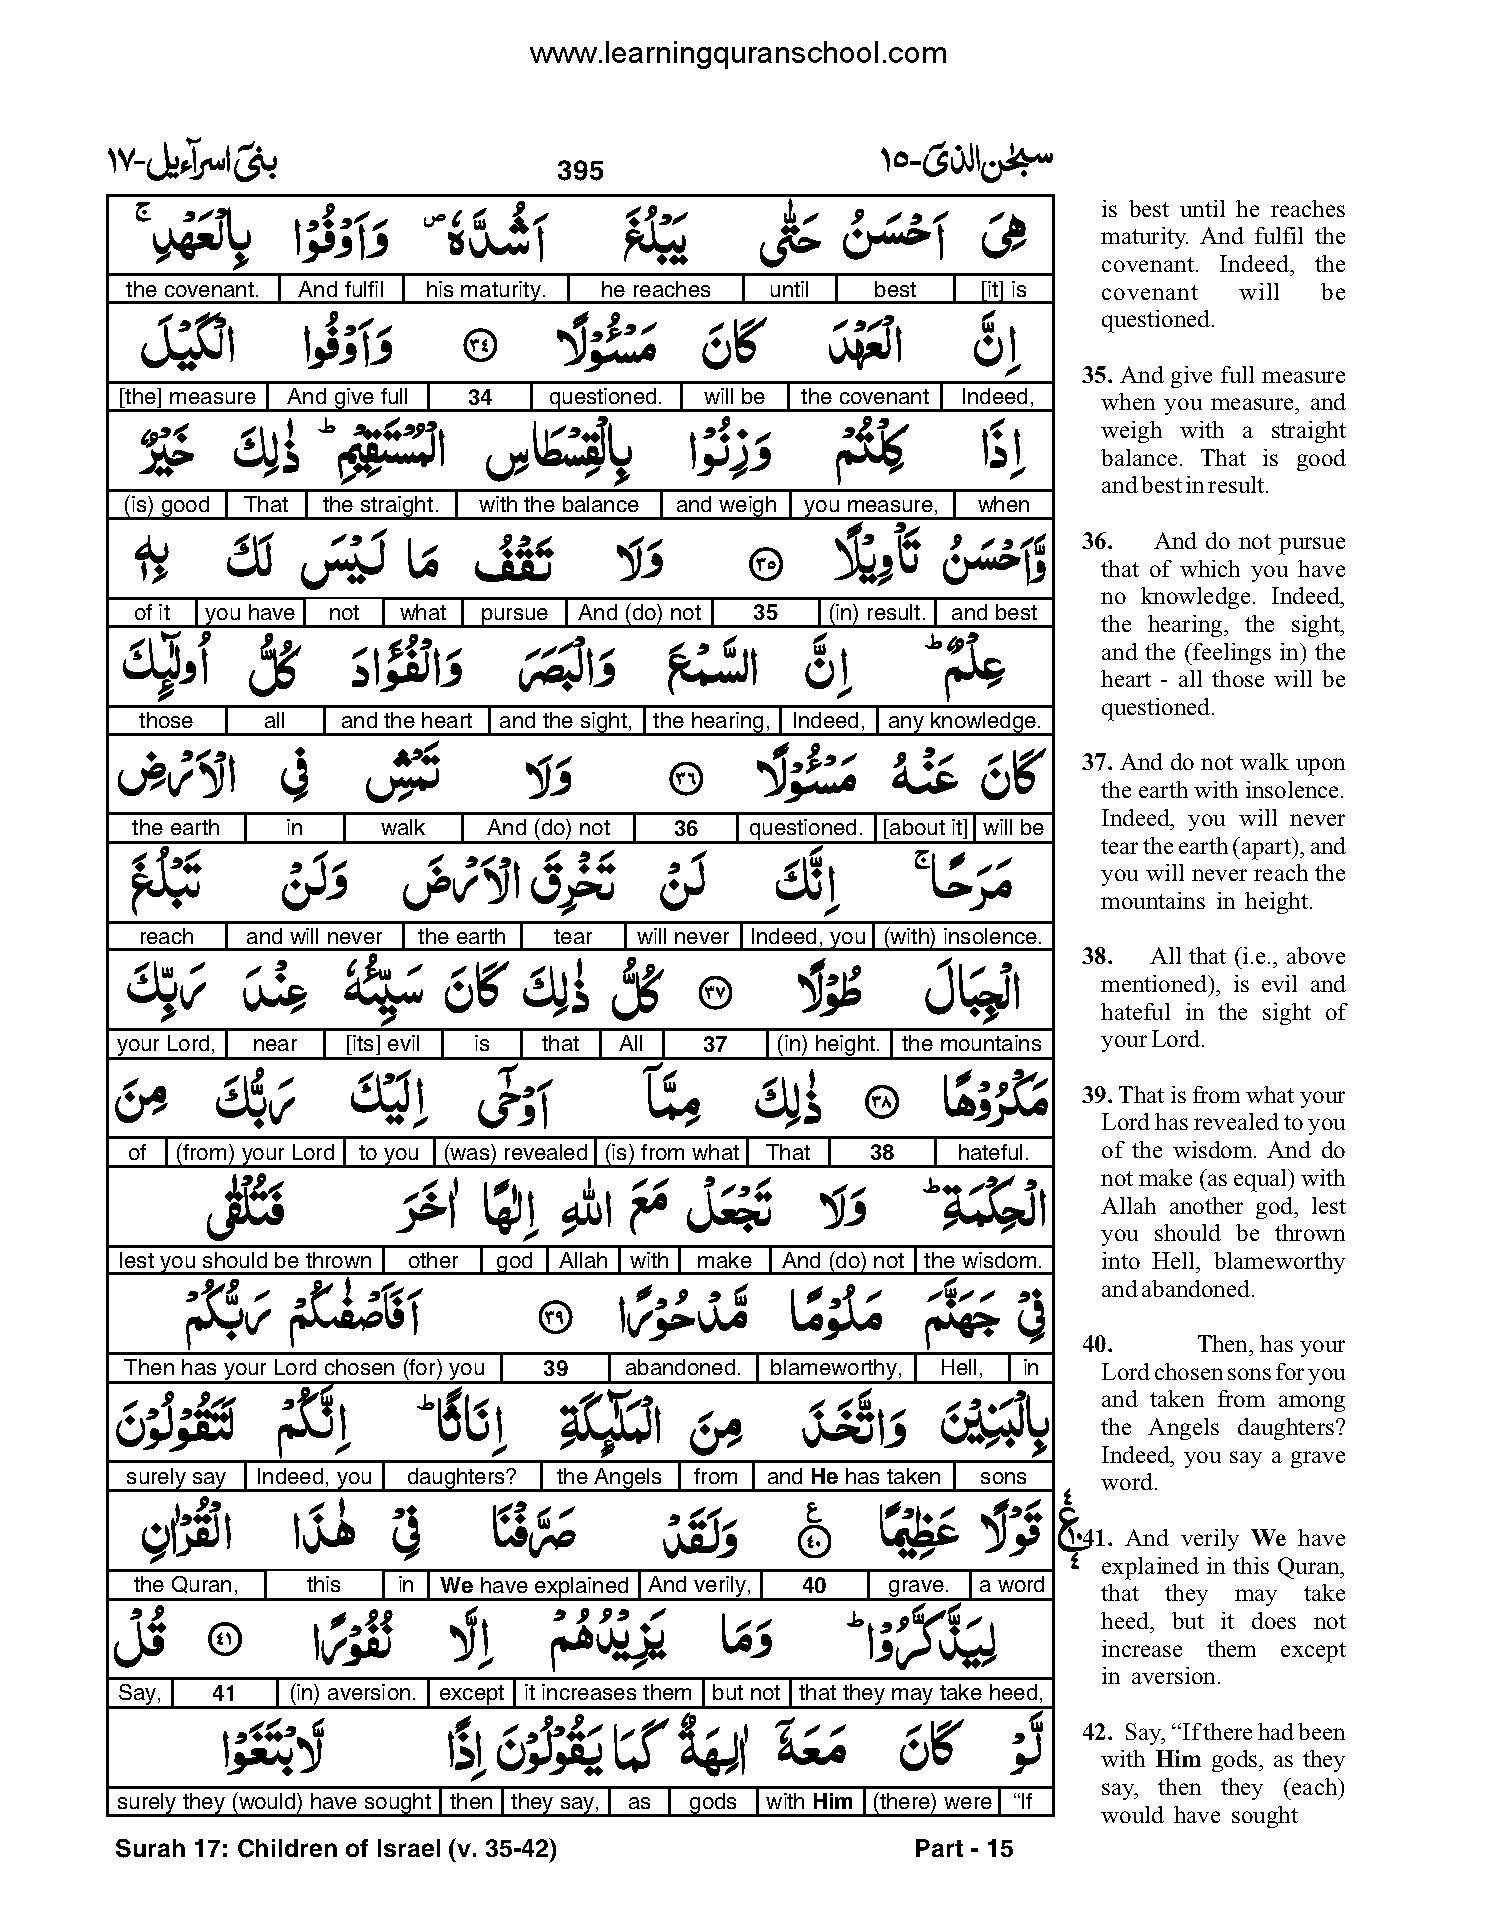 www.learningquranschool.com
سبحٰن الذیٓ-١٥
395
بنیٓ اسرآءیل-١٧
هِىَ اَحْسَنُ حَتّٰى يَبْلُغَ اَشُدَّهٗ ص وَاَوْفُوْا بِالْعَهْدِ ج
the covenant. And fulfil his maturity. he reaches until best [it] is
اِنَّ الْعَهْدَ كَانَ مَسْـُٔوْلًا ٣٤ وَاَوْفُوا الْكَيْلَ
[the] measure And give full 34 questioned. will be the covenant Indeed,
اِذَا كِلْتُمْ وَزِنُوْا بِالْقِسْطَاسِ الْمُسْتَقِيْمِ ط ذٰلِكَ خَيْرٌ
(is) good That the straight. with the balance and weigh you measure, when
وَّاَحْسَنُ تَاْوِيْلًا ٣٥ وَلَا تَقْفُ مَا لَيْسَ لَكَ بِهٖ
of it you have not what pursue And (do) not 35 (in) result. and best
عِلْمٌ ط اِنَّ السَّمْعَ وَالْبَصَرَ وَالْفُؤَادَ كُلُّ اُولٰٓئِكَ
those all and the heart and the sight, the hearing, Indeed, any knowledge.
كَانَ عَنْهُ مَسْـُٔوْلًا ٣٦ وَلَا تَمْشِ فِى الْاَرْضِ
the earth in walk And (do) not 36 questioned. [about it] will be
مَرَحًا ج اِنَّكَ لَنْ تَخْرِقَ الْاَرْضَ وَلَنْ تَبْلُغَ
reach and will never the earth tear will never Indeed, you (with) insolence.
الْجِبَالَ طُوْلًا ٣٧ كُلُّ ذٰلِكَ كَانَ سَيِّئُهٗ عِنْدَ رَبِّكَ
your Lord, near [its] evil is that All 37 (in) height. the mountains
مَكْرُوْهًا ٣٨ ذٰلِكَ مِمَّآ اَوْحٰٓى اِلَيْكَ رَبُّكَ مِنَ
of (from) your Lord to you (was) revealed (is) from what That 38 hateful.
الْحِكْمَةِ ط وَلَا تَجْعَلْ مَعَ اللّٰهِ اِلٰهًا اٰخَرَ فَتُلْقٰى
lest you should be thrown other god Allah with make And (do) not the wisdom.
فِىْ جَهَنَّمَ مَلُوْمًا مَّدْحُوْرًا ٣٩ اَفَاَصْفٰىكُمْ رَبُّكُمْ
Then has your Lord chosen (for) you 39 abandoned. blameworthy, Hell, in
بِالْبَنِيْنَ وَاتَّخَذَ مِنَ الْمَلٰٓئِكَةِ اِنَاثًا ط اِنَّكُمْ لَتَقُوْلُوْنَ
surely say Indeed, you daughters? the Angels from and He has taken sons
قَوْلًا عَظِيْمًا ع ٤٠ وَلَقَدْ صَرَّفْنَا فِىْ هٰذَا الْقُرْاٰنِ
the Quran, this in We have explained And verily, 40 grave. a word
لِيَذَّكَّرُوْا ط وَمَا يَزِيْدُهُمْ اِلَّا نُفُوْرًا ٤١ قُلْ
Say, 41 (in) aversion. except it increases them but not that they may take heed,
لَّوْ كَانَ مَعَهٗٓ اٰلِهَةٌ كَمَا يَقُوْلُوْنَ اِذًا لَّابْتَغَوْا
surely they (would) have sought then they say, as gods with Him (there) were “If
is best until he reaches
maturity. And fulfil the
covenant. Indeed, the
covenant will be
questioned.
35. And give full measure
when you measure, and
weigh with a straight
balance. That is good
and best in result.
36. And do not pursue
that of which you have
no knowledge. Indeed,
the hearing, the sight,
and the (feelings in) the
heart - all those will be
questioned.
37. And do not walk upon
the earth with insolence.
Indeed, you will never
tear the earth (apart), and
you will never reach the
mountains in height.
38. All that (i.e., above
mentioned), is evil and
hateful in the sight of
your Lord.
39. That is from what your
Lord has revealed to you
of the wisdom. And do
not make (as equal) with
Allah another god, lest
you should be thrown
into Hell, blameworthy
and abandoned.
40. Then, has your
Lord chosen sons for you
and taken from among
the Angels daughters?
Indeed, you say a grave
word.
٤
ع ١٠
٤
41. And verily We have
explained in this Quran,
that they may take
heed, but it does not
increase them except
in aversion.
42. Say, “If there had been
with Him gods, as they
say, then they (each)
would have sought
Surah 17: Children of Israel (v. 35-42)
Part - 15